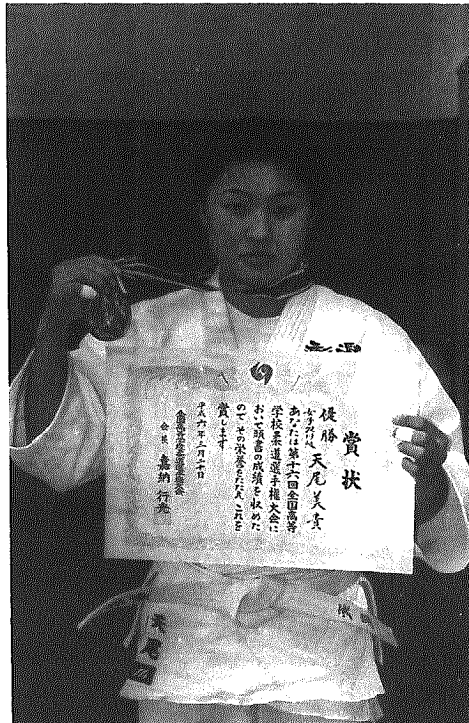 賞状
優勝
天尾美貴
あなたは第十六回全国高等
学校柔道選手権大会に
おいて頭書の成績を収めた
ので その栄誉をたたえ これを
賞します
平成六年三月二十日
会長 嘉納行光
天尾